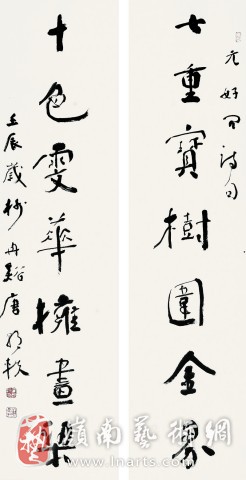 元好問詩句
七重寶樹圍金界
十色雯華擁畫梁
壬辰歲杪丹谿唐
嶺南藝術網
www.lnarts.com